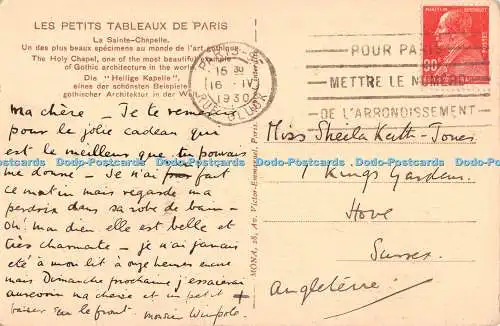 LES PETITS TABLEAUX DE PARIS
La Sainte-Chapelle.
Un des plus beaux spécimens au monde de l'art gothique.
The Holy Chapel, one of the most beautiful
of Gothic architecture in the world
Die "Heilige Kapelle".
eines der schönsten Beispiele
gothischer Architektur in der
PARIS
15 30
16 IV
1930
POUR PARIS
METTRE LE NUMÉRO
DE L'ARRONDISSEMENT
Ma chère — Je te remercie
pour le jolie cadeau qui
est le meilleur que tu pouvais
me donne — Je n'ai pas fait
ce matin mais regarde ma
perdrix dans sa robe de bain —
Oh! mon dieu elle est belle et
très charmante — je n'ai jamais
été à mon lit à onze heures encore
mais Dimanche prochaine j'essaierai
au revoir ma chere et un petit
baiser sur le front.
Miss Sheila Keith-Jones
7 Kings Gardens
Hove
Sussex
Angleterre
MONA, 28, Av. Victor-Emmanuel, Paris
Dodo-Postcards Dodo-Postcards Dodo-Postcards Dodo-Postcards Dodo-Postcards